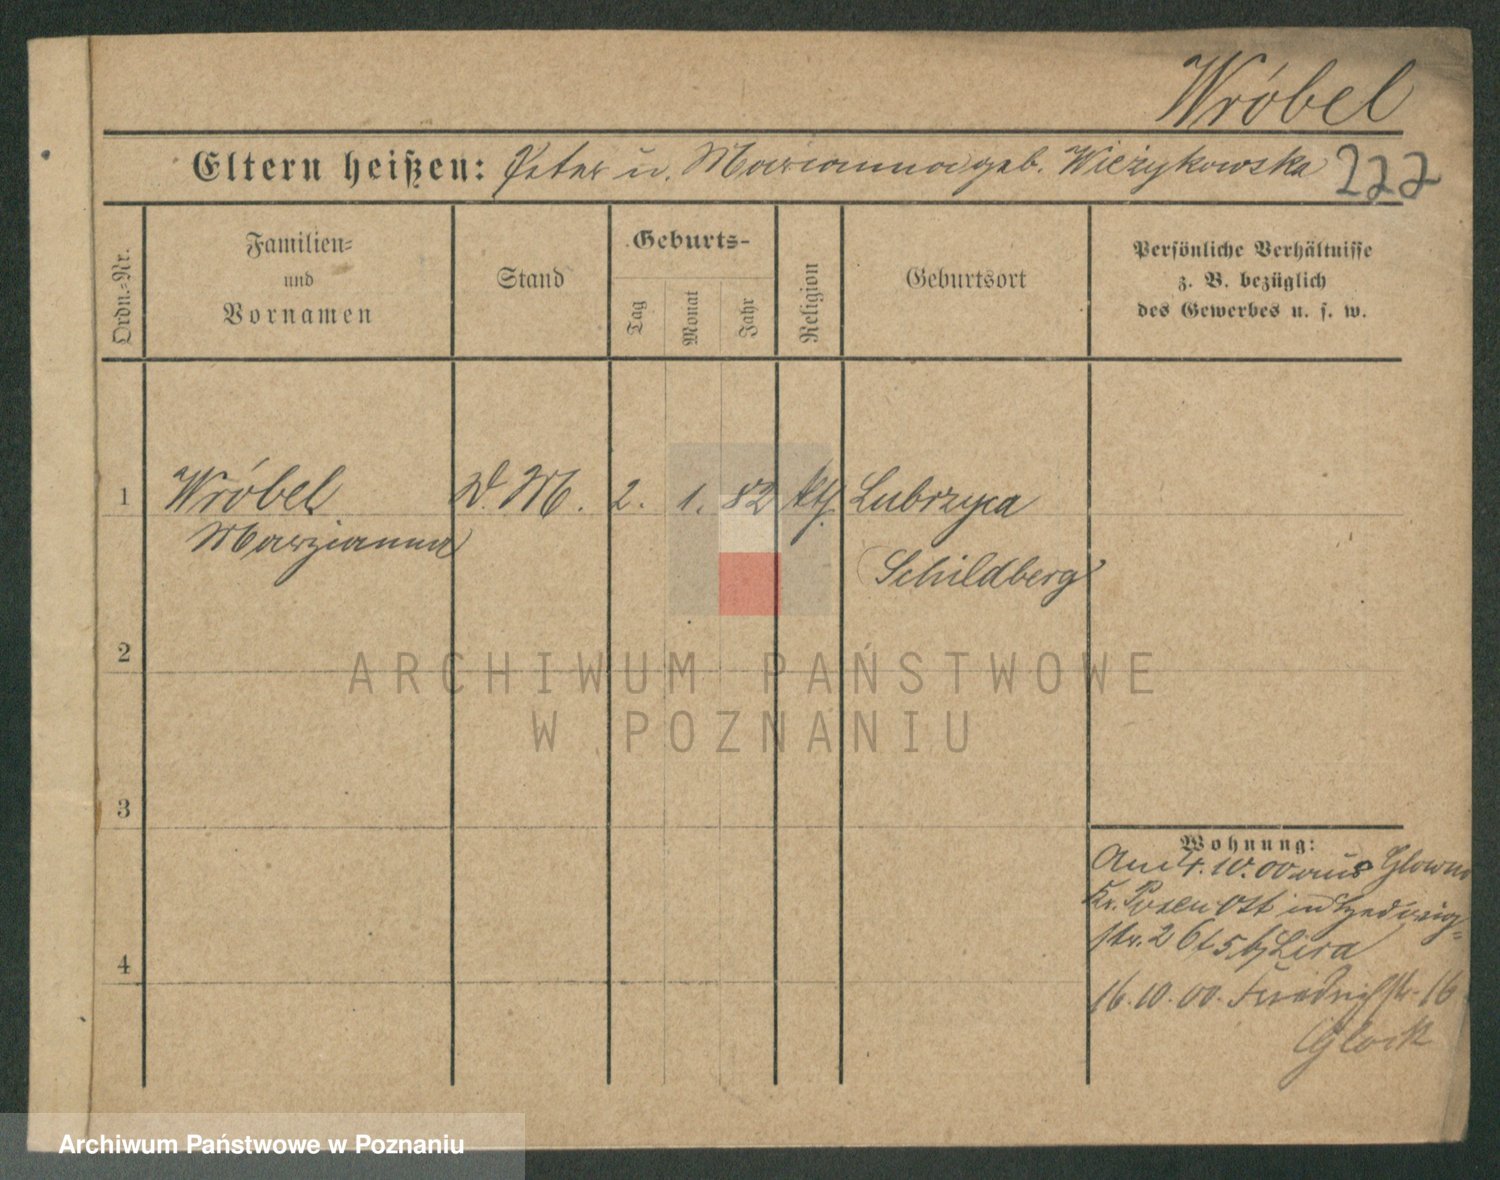 Wróbel
Eltern heißen: Peter u. Marianna geb. Wieżykowska 222
Ordn.-Nr.
Familien-
und
Vornamen
Stand
Geburts-
Tag
Monat
Jahr
Religion
Geburtsort
Persönliche Verhältnisse
z. B. bezüglich
des Gewerbes u. s. w.
1 Wróbel D. M. 2. 1. 82 kth. Lubrzyca
Marzianna
Schildberg
2
ARCHIWUM PAŃSTWOWE
W POZNANIU
3
Wohnung:
Am 4. 10. 00 aus Glowno
Kr. Posen Ost in Hedwig-
str. 2 b/ Lira
4
16. 10. 00. Friedrichstr. 16
Glock
Archiwum Państwowe w Poznaniu